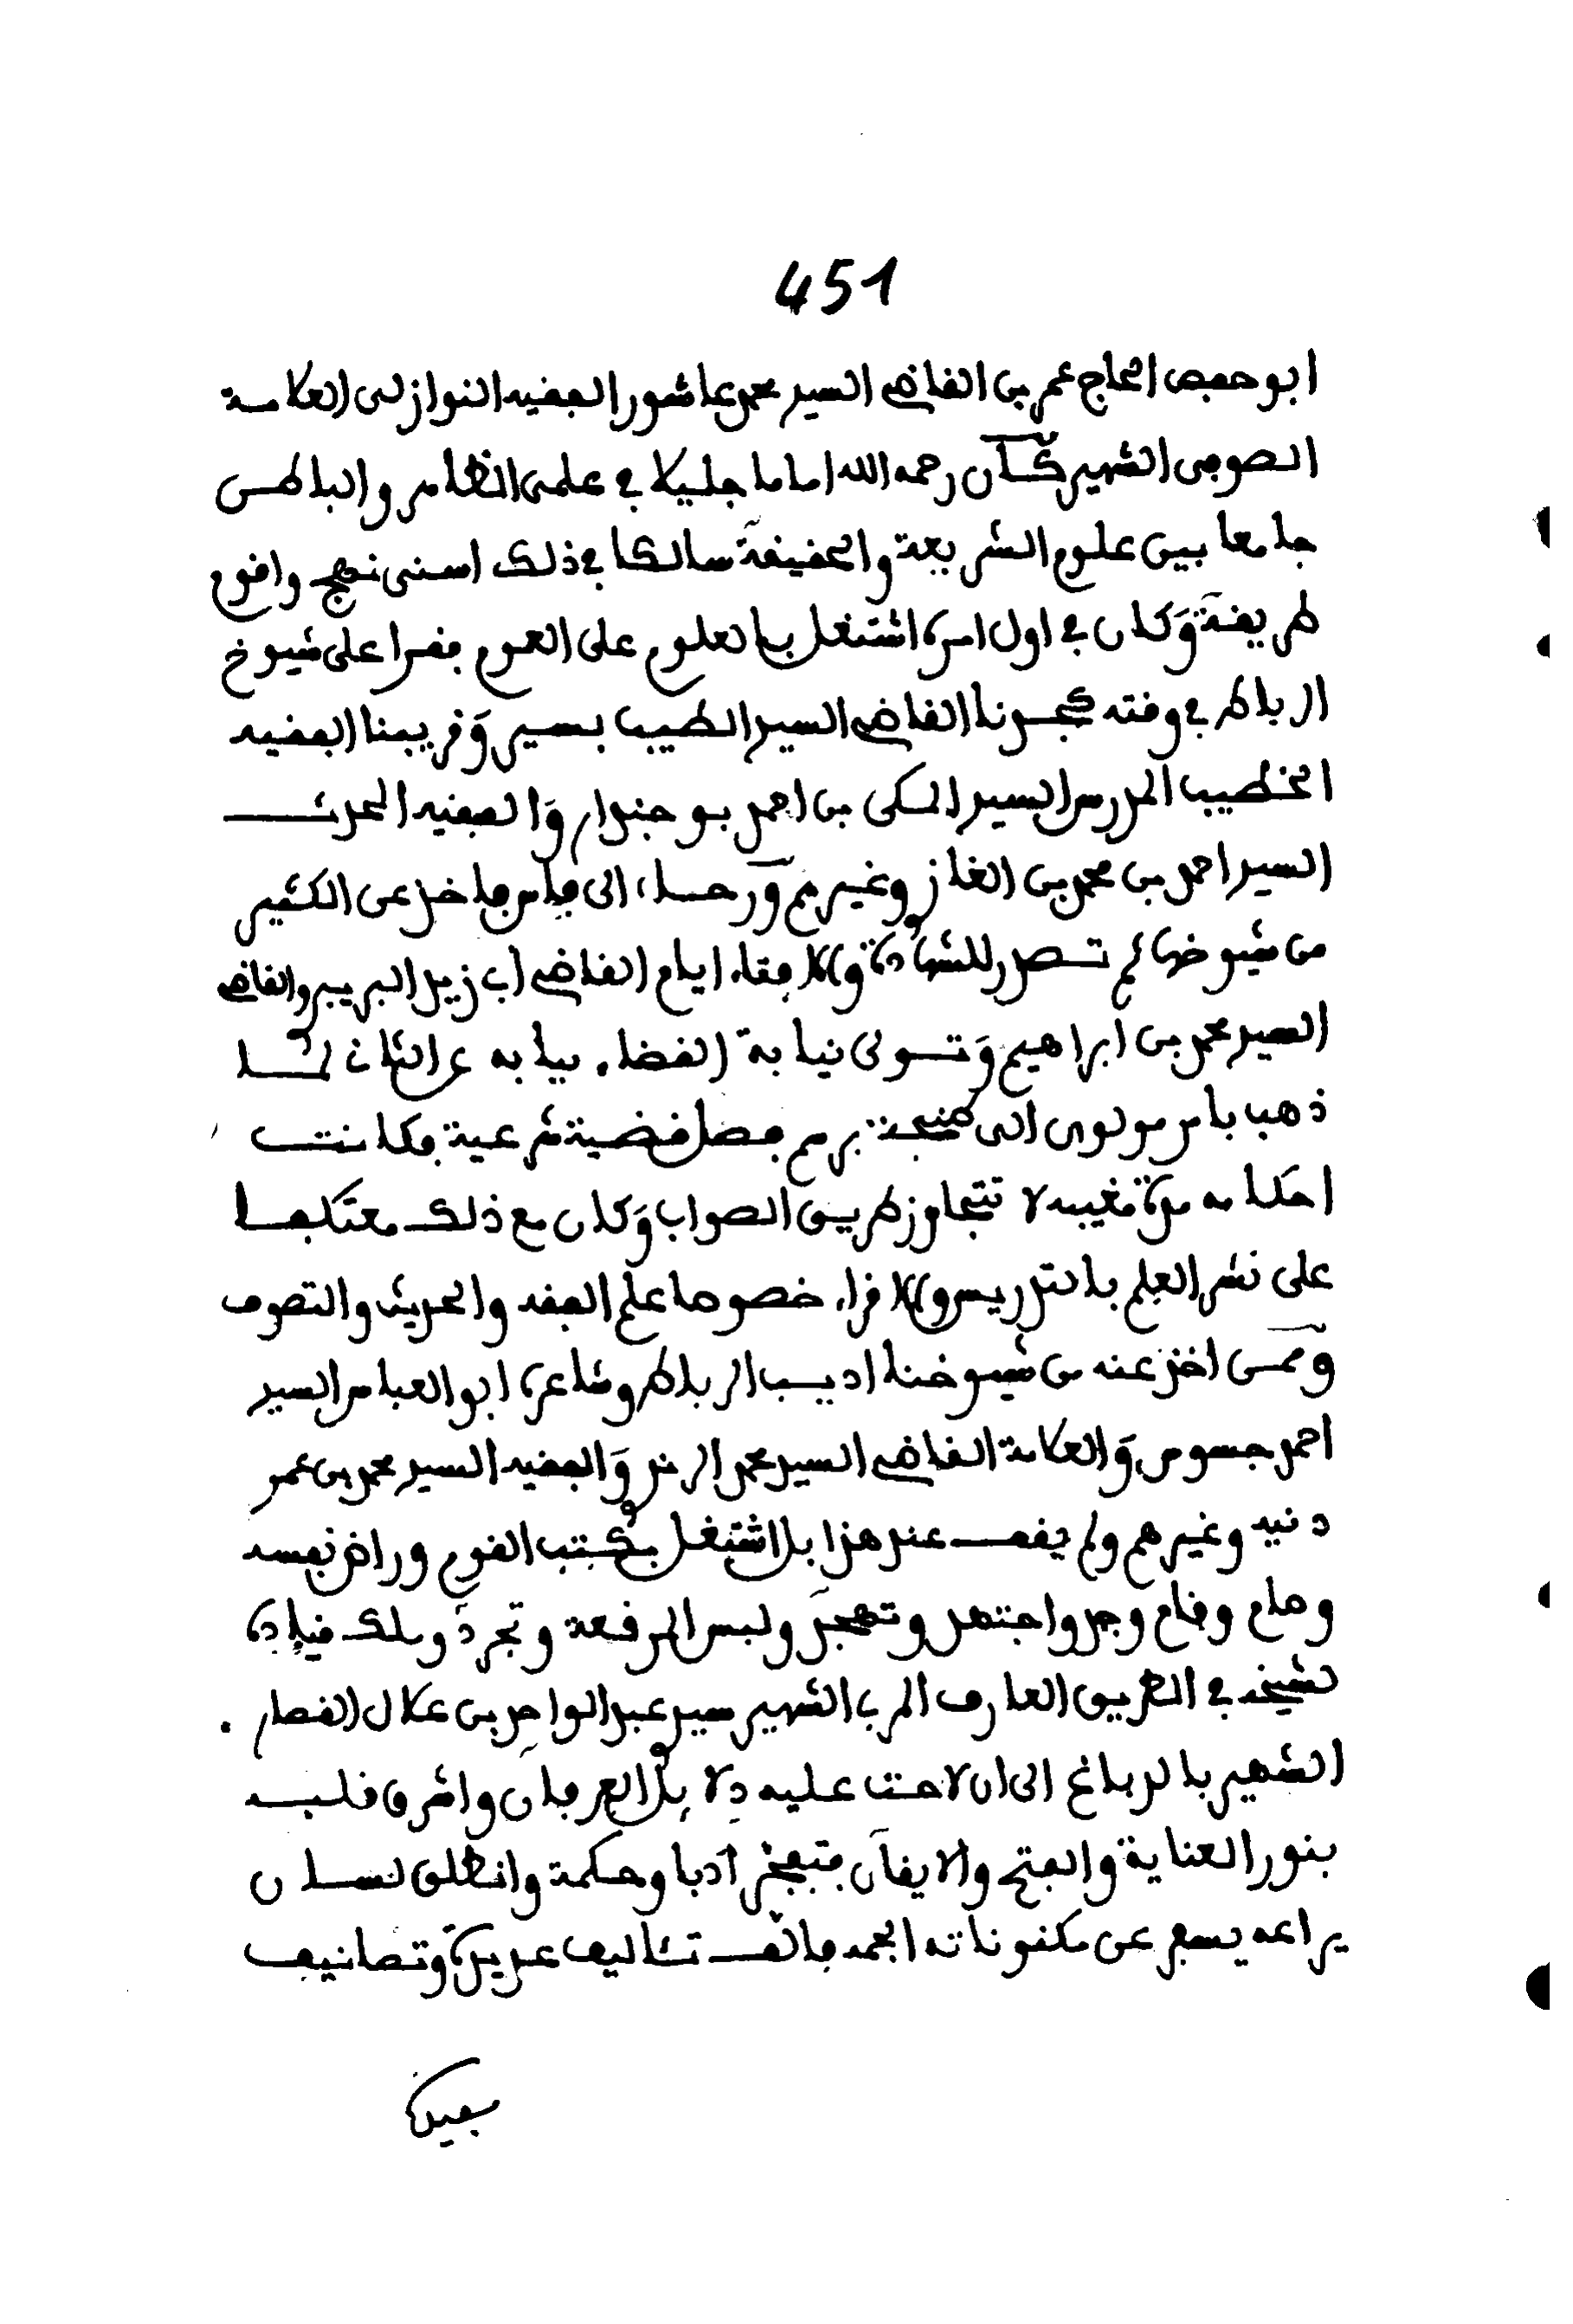 451
ابو حفص الحاج عمر بن القاضي السيد محمد عاشور الفقيه النوازلي العلامـة
الصوفي الشهير كـان رحمه الله اماما جليلا في علمي الظاهر والباطـن
جامعا بين علوم الشريعة والحقيقة سالكا في ذلك اسنى نهج واقوم
طريقة وكان في اول امره اشتغل بالعلوم على العموم فقرا على شيوخ
الرباط في وقته كجدنا القاضي السيد الطيب بسير وقريبنا الفقيه
الخطيب المدرس السيد المكي بن احمد بو جندار والفقيه المحدث
السيد احمد بن محمد بن الغاز وغيرهم ورحـل الى فاس فاخذ عن الكثير
من شيوخها ثم تـصدر للشهادة والافتاء ايام القاضي ابي زيد البريبر والقاضي
السيد محمد بن ابراهيم وتـولى نيابة القضاء بيابه عن الثاني لمـا
ذهب بامر مولوي الى طنجة برسم فصل قضية شرعية فكانت
احكامه مدة مغيبه لا تتجاوز طريـق الصواب وكان مع ذلك معتكفـا
على نشر العلم بالتدريس والاقراء خصوصا علم الفقه والحديث والتصوف
وممـن اخذ عنه من شيوخنا اديـب الرباط وشاعره ابو العباس السيد
احمد جسوس والعلامة القاضي السيد محمد الرندة والفقيه السيد محمد بن عمر
دنيه وغيرهم ولم يقف عند هذا بل اشتغل بكتب القوم وراض نفسه
وصام وقام وجد واجتهد وتهجد ولبس المرقعة وتجرد وملك قياده
لشيخه في الطريق العارف المربي الشهير سيد عبد الواحد بن علال القصار
الشهير بالدباغ الى ان لاحت عليه دلائل العرفان واشرق قلبـه
بنور العناية والفتح والايقان فتفجر ادبا وحكمة وانطلق لسـان
يراعه يسفر عن مكنوناته الجمة فالف تئاليف عديدة وتصانيف
مفيدة